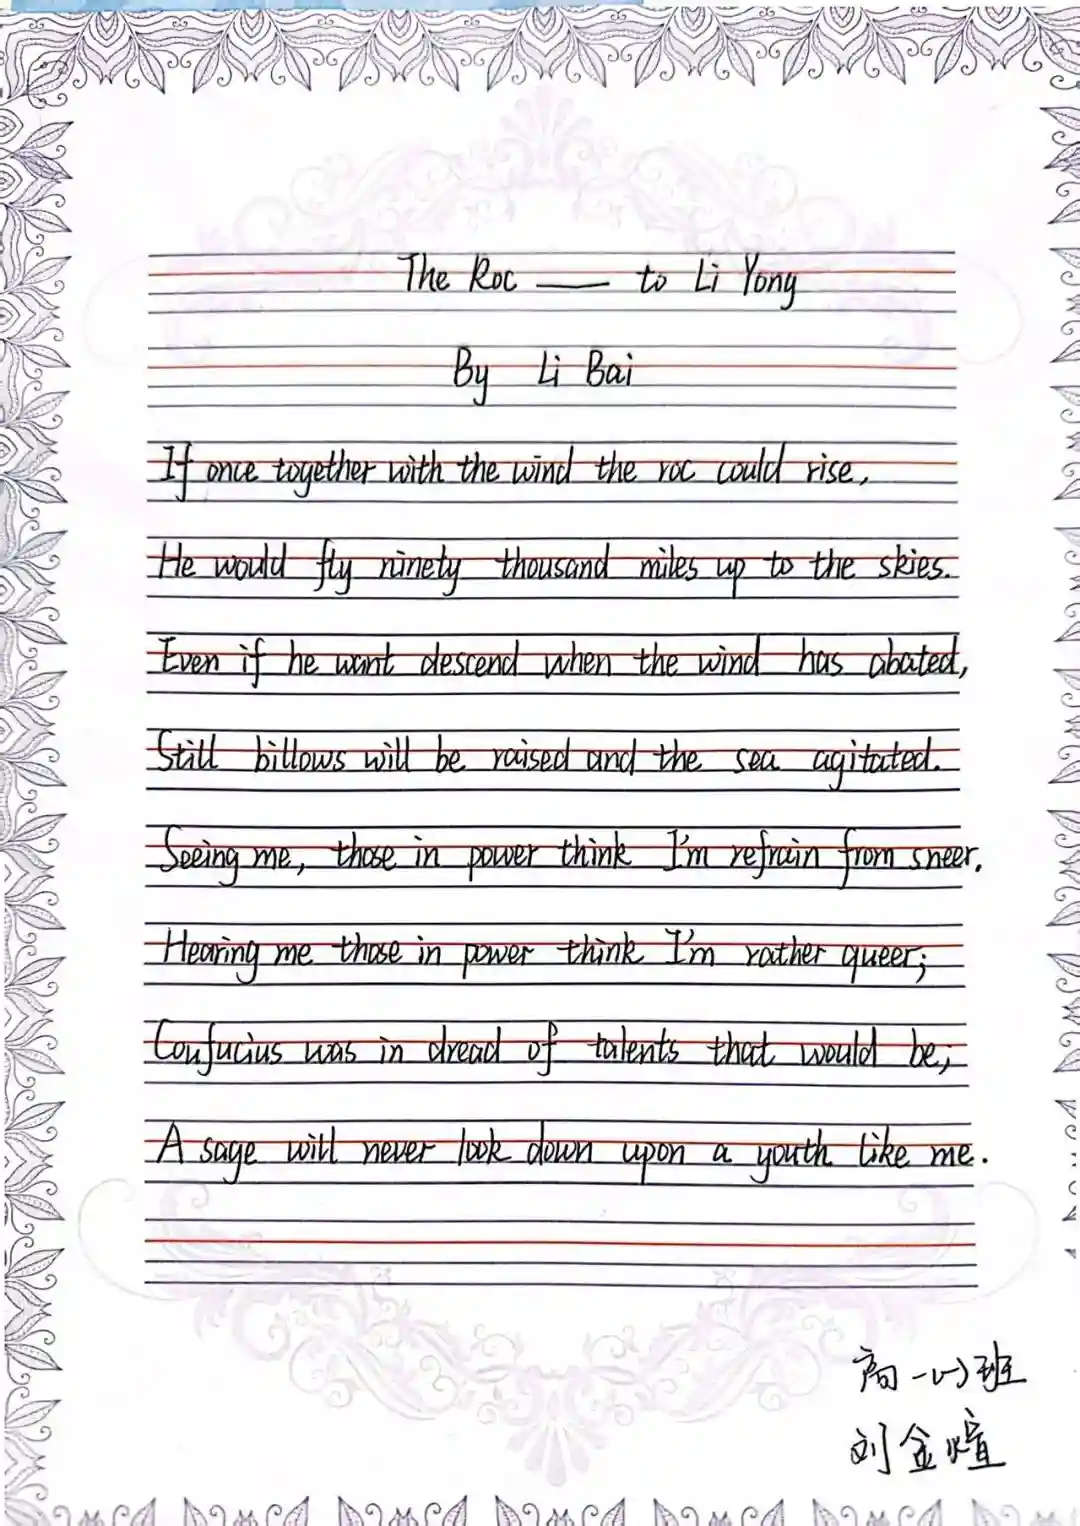 The Roc —— to Li Yong
By Li Bai
If once together with the wind the roc could rise,
He would fly ninety thousand miles up to the skies.
Even if he want descend when the wind has abated,
Still billows will be raised and the sea agitated.
Seeing me, those in power think I'm refrain from sneer.
Hearing me those in power think I'm rather queer;
Confucius was in dread of talents that would be;
A sage will never look down upon a youth like me.
高一(一)班
刘金煊